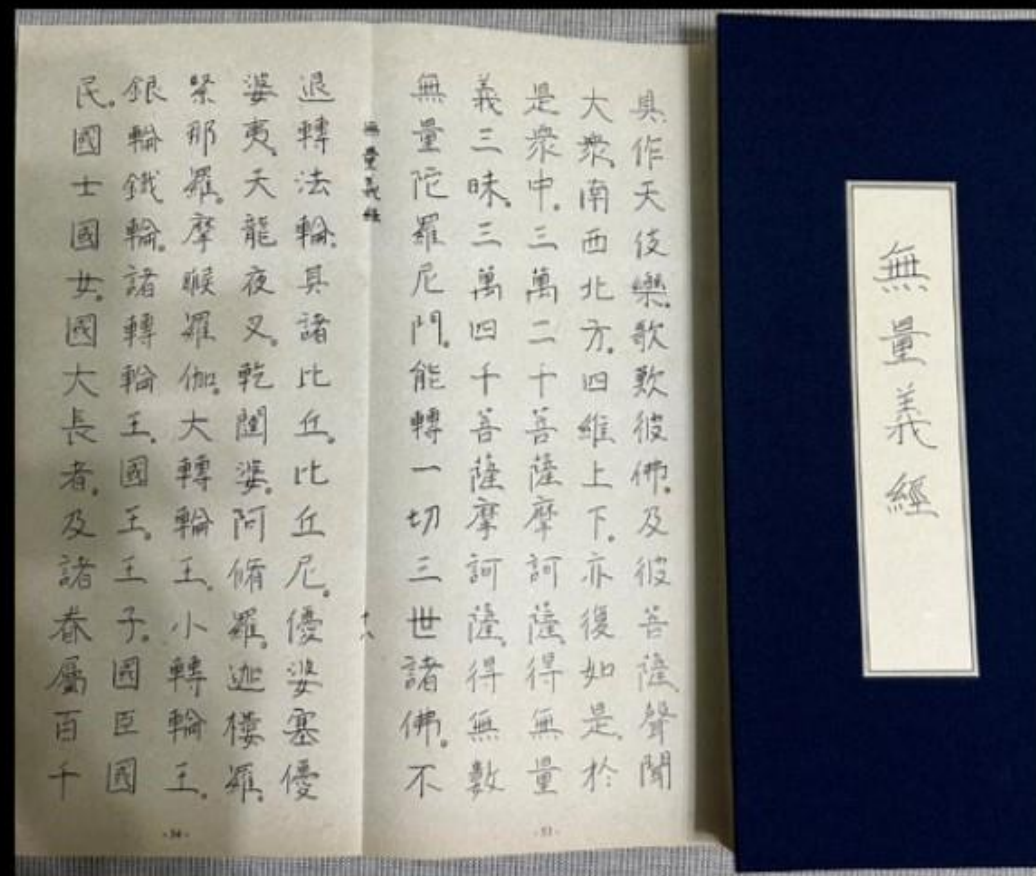 無量義經
具作天伎樂。歌歎彼佛。及彼菩薩聲聞
大衆。南西北方。四維上下。亦復如是。於
是衆中。三萬二千菩薩摩訶薩。得無量
義三昧。三萬四千菩薩摩訶薩。得無數
無量陀羅尼門。能轉一切三世諸佛。不
- 53 -
無量義經
十八
退轉法輪。其諸比丘。比丘尼。優婆塞優
婆夷。天龍夜叉。乾闥婆。阿脩羅。迦樓羅。
緊那羅。摩睺羅伽。大轉輪王。小轉輪王。
銀輪鐵輪。諸轉輪王。國王。王子。國臣國
民。國士國女。國大長者。及諸眷屬百千
- 54 -